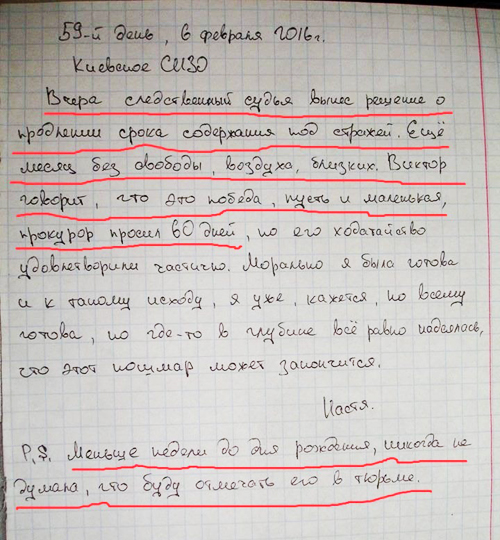 59-й день, 6 февраля 2016г.
Киевское СИЗО
Вчера следственный судья вынес решение о
продлении срока содержания под стражей. Ещё
месяц без свободы, воздуха, близких. Виктор
говорит, что это победа, пусть и маленькая,
прокурор просил 60 дней, но его ходатайство
удовлетворили частично. Морально я была готова
и к такому исходу, я уже, кажется, ко всему
готова, но где-то в глубине всё равно надеялась,
что этот кошмар может закончится.
Настя.
P.S. Меньше недели до дня рождения, никогда не
думала, что буду отмечать его в тюрьме.